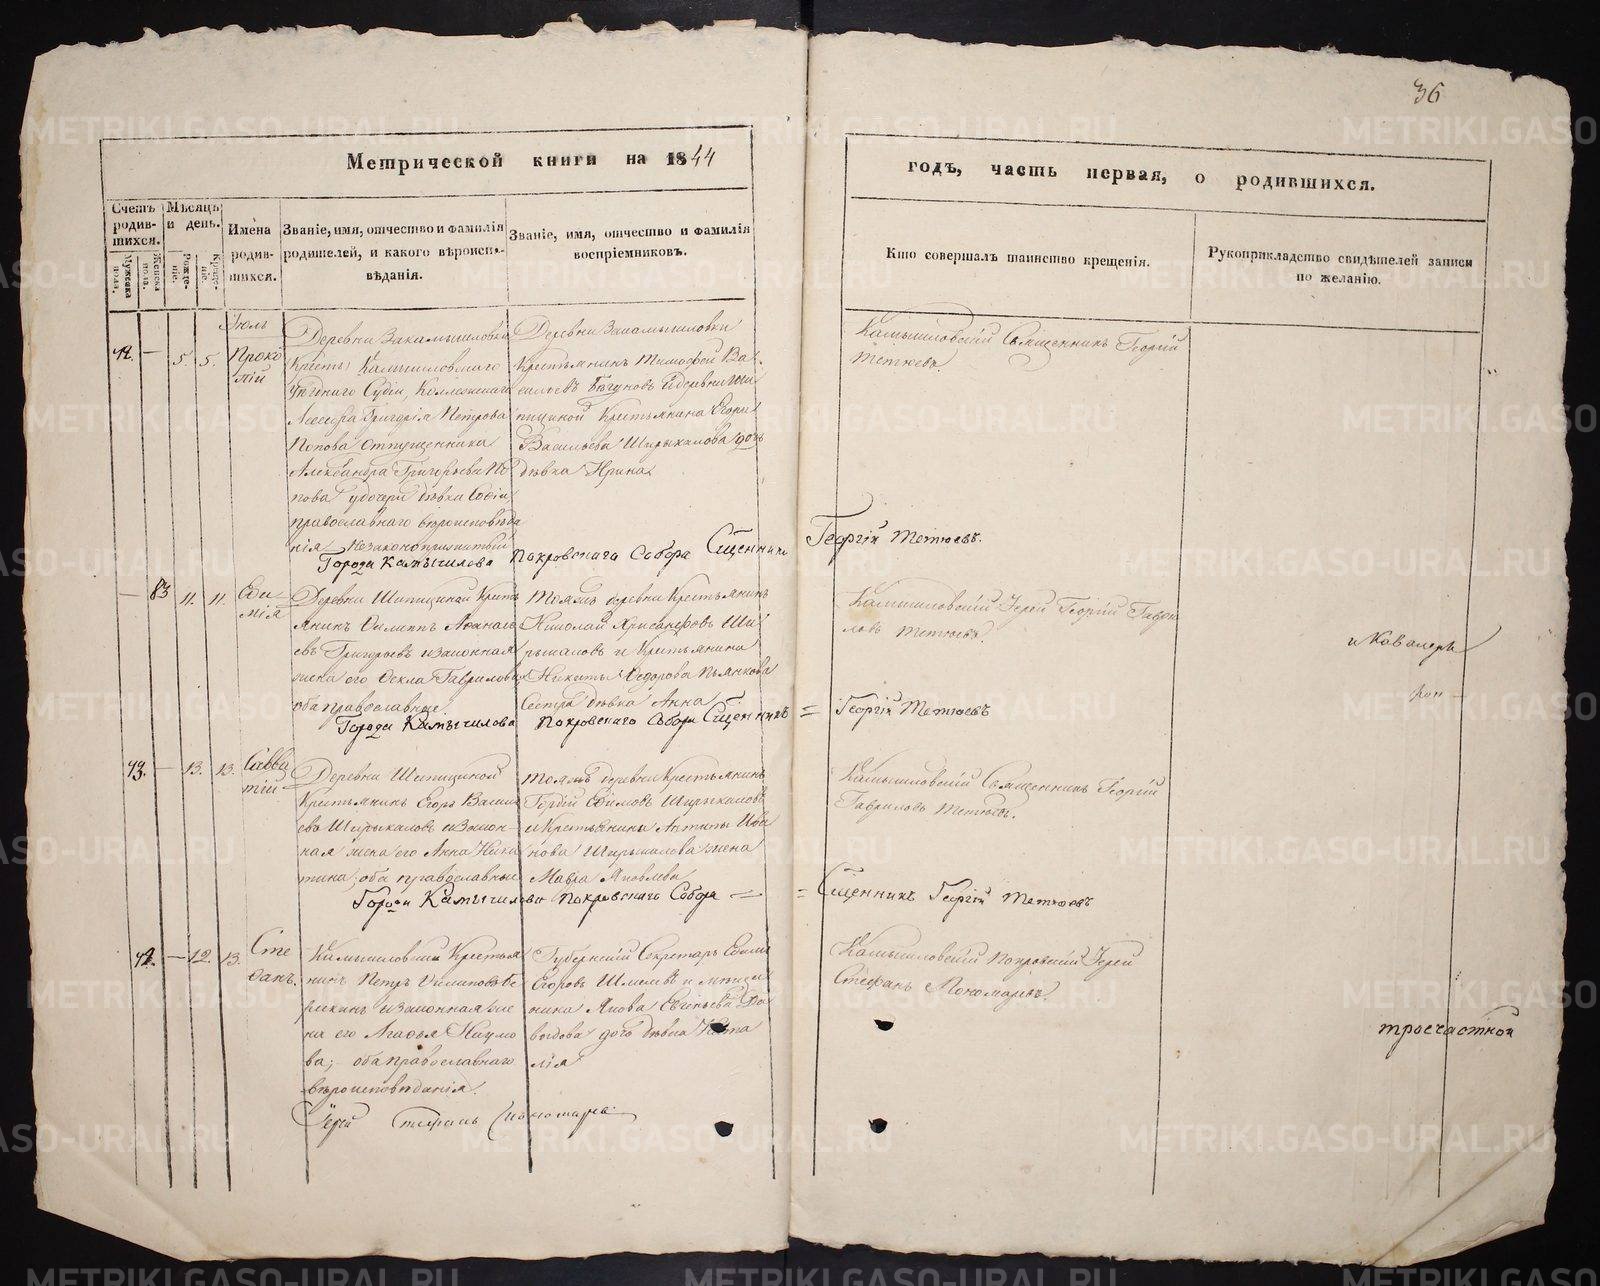 36
Метрической книги на 1844
годъ, часть первая, о родившихся.
Счетъ родив-шихся.
Мужеска пола.
Женска пола.
Мѣсяцъ и день.
Рожде-ніе.
Креще-ніе.
Имена родив-шихся.
Званіе, имя, отчество и фамилія
родителей, и какого вѣроиспо-
вѣданія.
Званіе, имя, отчество и фамилія
воспріемниковъ.
Кто совершалъ таинство крещенія.
Рукоприкладство свидѣтелей записи
по желанію.
Іюль
5. 5.
Проко
пій
Деревни Закамышловки
Камышловскаго
Уѣзднаго Судьи, Коллежскаго
Ассесора Григорія Петрова
Попова отпущенника
Александра Григорьева По
пова дочери дѣвки Софіи
православнаго вѣроисповѣда
нія незаконоприжитый
Деревни Закамышловки
Крестьянинъ Тимофей Ва-
сильевъ Бѣгуновъ и деревни Ши
пициной Крестьянина Егора
Васильева Ширыкалова дочь
дѣвка Ирина
Камышловскій Священникъ Георгій
Тетюевъ.
Города Камышлова Покровскаго Собора Сщенникъ Георгій Тетюевъ.
83 11. 11.
Ефи-
мія
Деревни Шипициной Кресть
янинъ Филиппъ Афанась
евъ Григорьевъ и законная
жена его Фекла Гаврилова
оба православные.
Тояжъ деревни Крестьянинъ
Николай Хрисанфовъ Ши
рыкаловъ и Крестьянина
Никиты Федорова Пьянкова
Сестра дѣвка Анна
Камышловскій Іерей Георгій Гаври
ловъ Тетюевъ.
и Кавалеръ
Города Камышлова Покровскаго Собора Сщенникъ = Георгій Тетюевъ
13. 13.
Савва
тій
Деревни Шипициной
Крестьянинъ Егоръ Василь
евъ Ширыкаловъ и закон-
ная жена его Анна Ники
тина; оба православные
Тояжъ деревни Крестьянинъ
Гордій Ефимовъ Ширыкаловъ
и Крестьянина Антипы Ива
нова Ширыкалова жена
Мавра Яковлева
Камышловскій Священникъ Георгій
Гавриловъ Тетюевъ.
Города Камышлова Покровскаго Собора = Сщенникъ Георгій Тетюевъ
12. 13.
Сте
фанъ.
Камышловскій Крестья
нинъ Петръ Филиповъ
и законная же
на его Агафья Наумо
ва; оба православнаго
вѣроисповѣданія.
Губернскій Секретарь Ефимъ
Егоровъ и мещани
нина Якова Евгеньева Да
выдова дочь дѣвка Ната
лія
Камышловскій Покровскій Іерей
Стефанъ Пономаревъ.
Іерей Стефанъ Пономаревъ